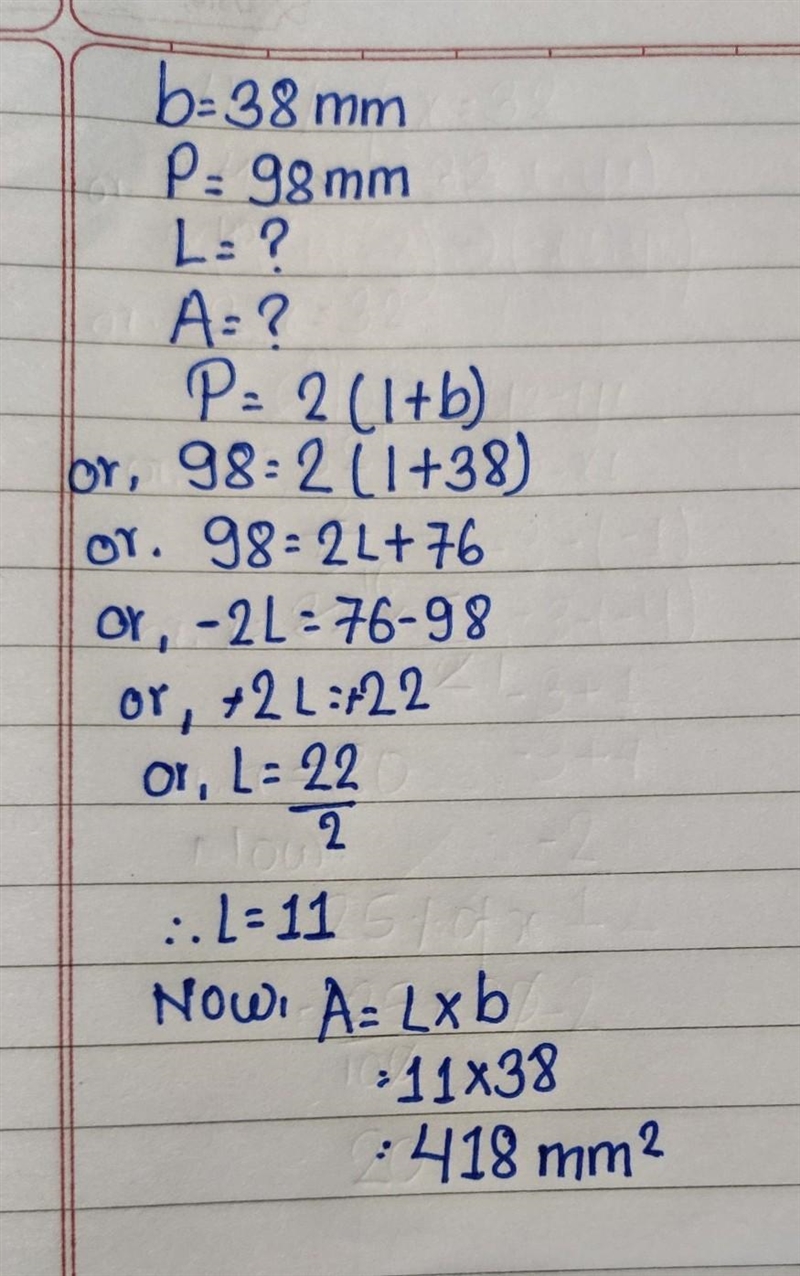 b=38 mm
P= 98mm
L= ?
A= ?
P= 2(l+b)
or, 98=2(l+38)
or. 98=2L+76
or, -2L=76-98
or, +2L=+22
or, L= 22/2
∴ L=11
Now, A= L×b
=11×38
= 418 mm²